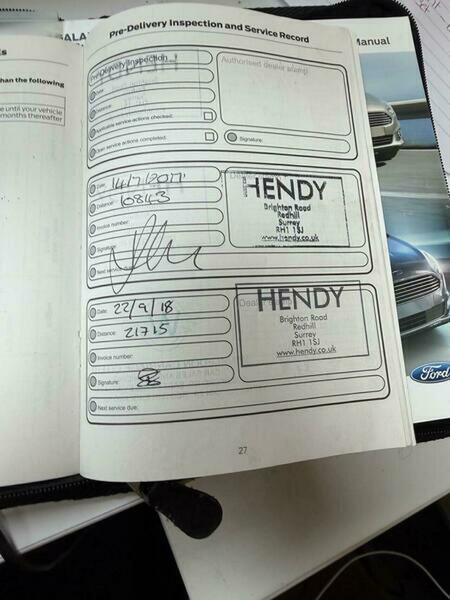 Pre-Delivery Inspection and Service Record
Manual
than the following
e until your vehicle
months thereafter
Pre-Delivery Inspection
Date:
Distance:
Applicable service actions checked:
Open service actions completed:
Authorised dealer stamp
Signature:
Date: 14/7/2017
Distance: 10843
Invoice number:
Signature:
Next service
HENDY
Brighton Road
Redhill
Surrey
RH1 1SJ
www.hendy.co.uk
Date: 22/9/18
Distance: 21715
Invoice number:
Signature:
Next service due:
HENDY
Brighton Road
Redhill
Surrey
RH1 1SJ
www.hendy.co.uk
27
Ford